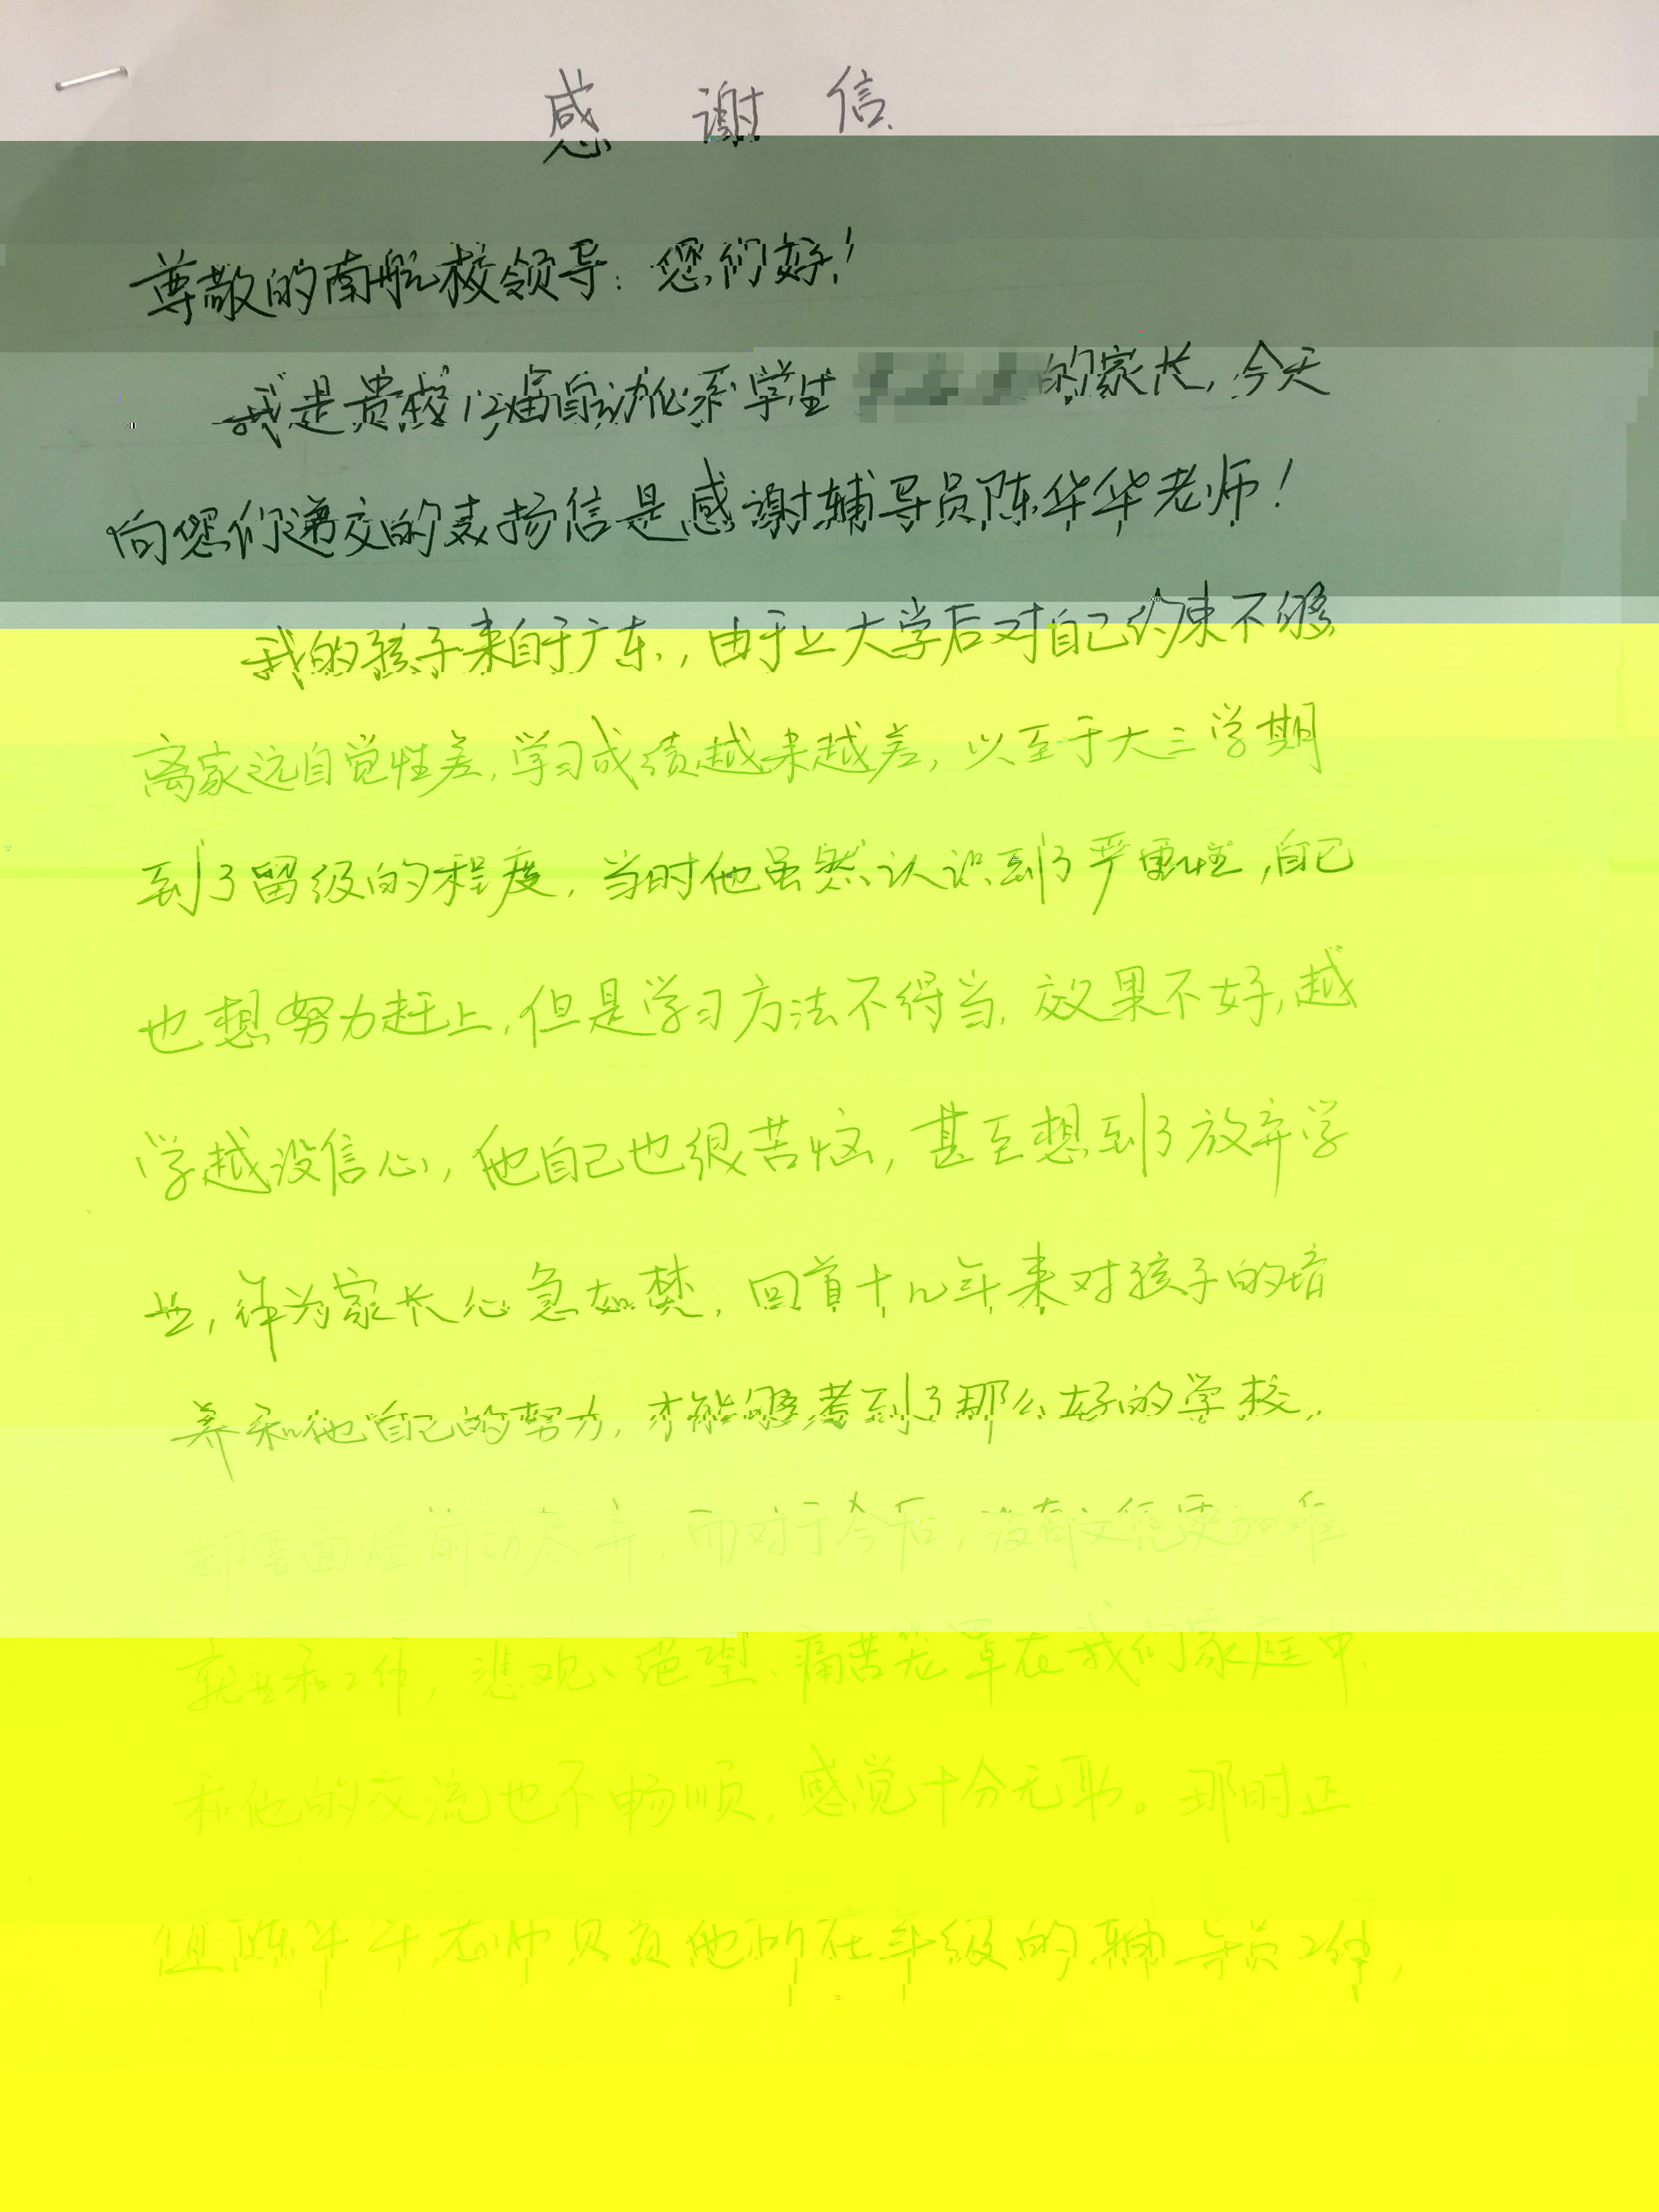 感谢信
尊敬的南航校领导：您们好！
我是贵校12届自动化系学生 的家长，今天
向您们递交的表扬信是感谢辅导员陈华华老师！
我的孩子来自于广东，由于上大学后对自己约束不够
离家远自觉性差，学习成绩越来越差，以至于大三学期
到了留级的程度，当时他虽然认识到了严重性，自己
也想努力赶上，但是学习方法不得当，效果不好，越
学越没信心，他自己也很苦恼，甚至想到了放弃学
业，作为家长心急如焚，回首十几年来对孩子的培
养和他自己的努力，才能够考到了那么好的学校，
却要面临前功尽弃，而对于今后，没有文凭更加难
就业和工作，悲观、绝望、痛苦笼罩在我们家庭中，
和他的交流也不畅顺，感觉十分无助。那时正
值陈华华老师负责他所在年级的辅导员工作，